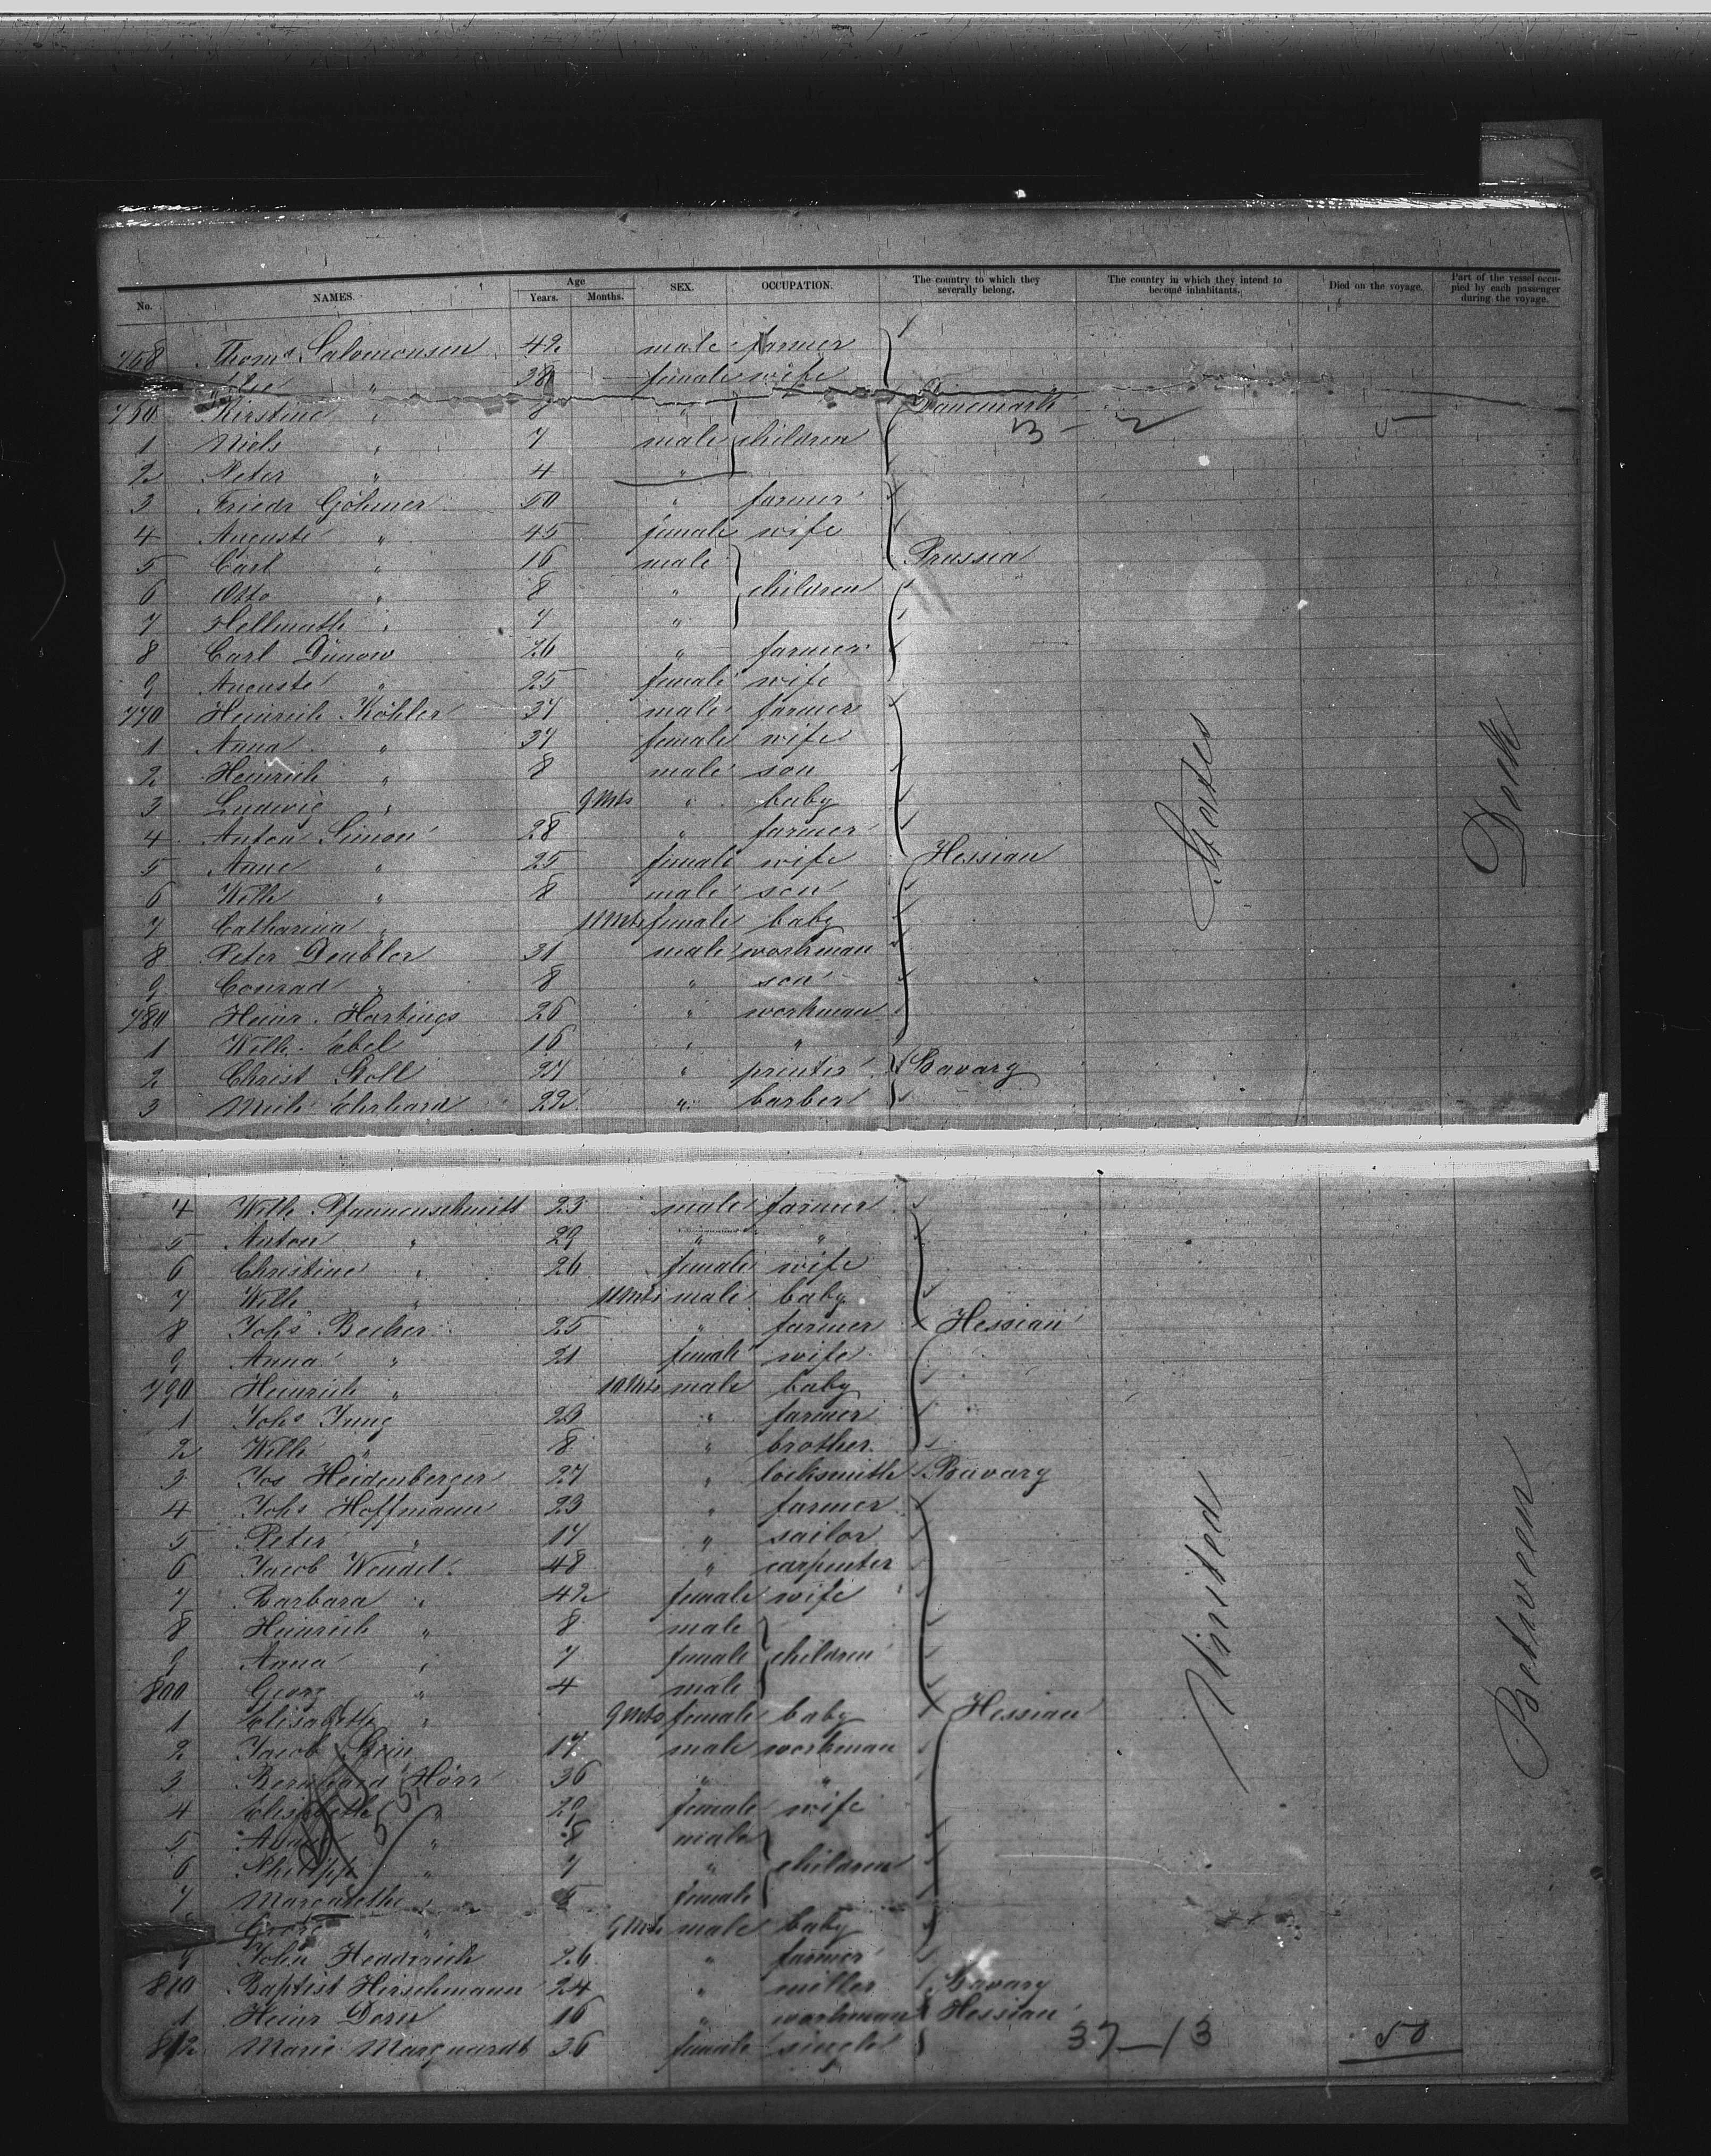 No. NAMES. Age Years. Months. SEX. OCCUPATION. The country to which they severally belong. The country in which they intend to become inhabitants. Died on the voyage. Part of the vessel occupied by each passenger during the voyage.
758 Thoms Salomonsen 42 male farmer
" 38 female wife
760 Kirstine " 8 " Danemark
1 Niels " 7 male children 3 - 2 5
2 Peter " 4 "
3 Friedr Göhmer 50 " farmer
4 Auguste " 45 female wife
5 Carl " 16 male Prussia
6 Otto " 8 " children
7 Hellmuth " 7 "
8 Carl Dünow 26 " farmer
9 Auguste " 25 female wife
770 Heinrich Köhler 37 male farmer
1 Anna " 37 female wife
2 Heinrich " 8 male son
3 Ludwig " 9 Mts " baby
4 Anton Simon 28 " farmer
5 Anne " 25 female wife Hessian
6 Wilh " 8 male son
7 Catharina " 11 Mts female baby
8 Peter Deubler 31 male workman
9 Conrad " 8 " son
780 Heinr. Hartings 26 " workman
1 Wilh. Ebel 16 " "
2 Christ Stoll 27 " printer Bavary
3 Mich Ehrhard 22 " barber
4 Wilh Pfannenschmitt 23 male farmer
5 Anton " 29 " "
6 Christine " 26 female wife
7 Wilh " 11 Mts male baby
8 Johs Becher 25 " farmer Hessian
9 Anna " 21 female wife
790 Heinrich " 10 Mts male baby
1 Johs Jung 23 " farmer
2 Wilh " 8 " brother
3 Jos Heidenberger 27 " locksmith Bavary
4 Johs Hoffmann 23 " farmer
5 Peter " 17 " sailor
6 Jacob Wendel 48 " carpenter
7 Barbara " 42 female wife
8 Heinrich " 8 male
9 Anna " 7 female children
800 Georg " 4 male
1 Elisabeth " 9 Mts female baby Hessian
2 Jacob Stein 17 male workman
3 Bernhard Hörr 36 " "
4 Elisabeth " 29 female wife
5 Adam " 8 male
6 Philipp " 7 " children
7 Margarethe " female
Georg " 9 Mts male baby
9 John Heddrich 26 " farmer
810 Baptist Hirschmann 24 " miller Bavary
1 Heinr Dorn 16 " workman Hessian
812 Marie Marquardt 36 female single 37-13 50
United States
Between Deck